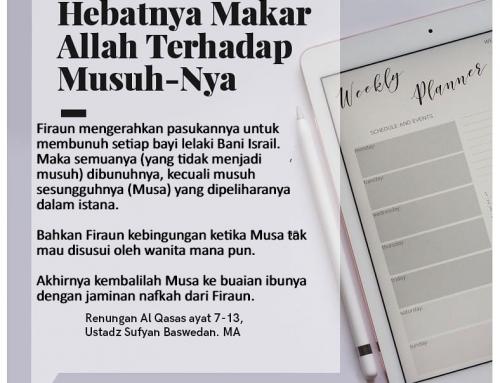 Hebatnya Makar
Allah Terhadap
Musuh-Nya
Firaun mengerahkan pasukannya untuk
membunuh setiap bayi lelaki Bani Israil.
Maka semuanya (yang tidak menjadi
musuh) dibunuhnya, kecuali musuh
sesungguhnya (Musa) yang dipeliharanya
dalam istana.
Bahkan Firaun kebingungan ketika Musa tak
mau disusui oleh wanita mana pun.
Akhirnya kembalilah Musa ke buaian ibunya
dengan jaminan nafkah dari Firaun.
Renungan Al Qasas ayat 7-13,
Ustadz Sufyan Baswedan. MA
Weekly Planner
SCHEDULE AND EVENTS
monday:
tuesday:
wednesday:
thursday:
friday:
saturday:
sunday: